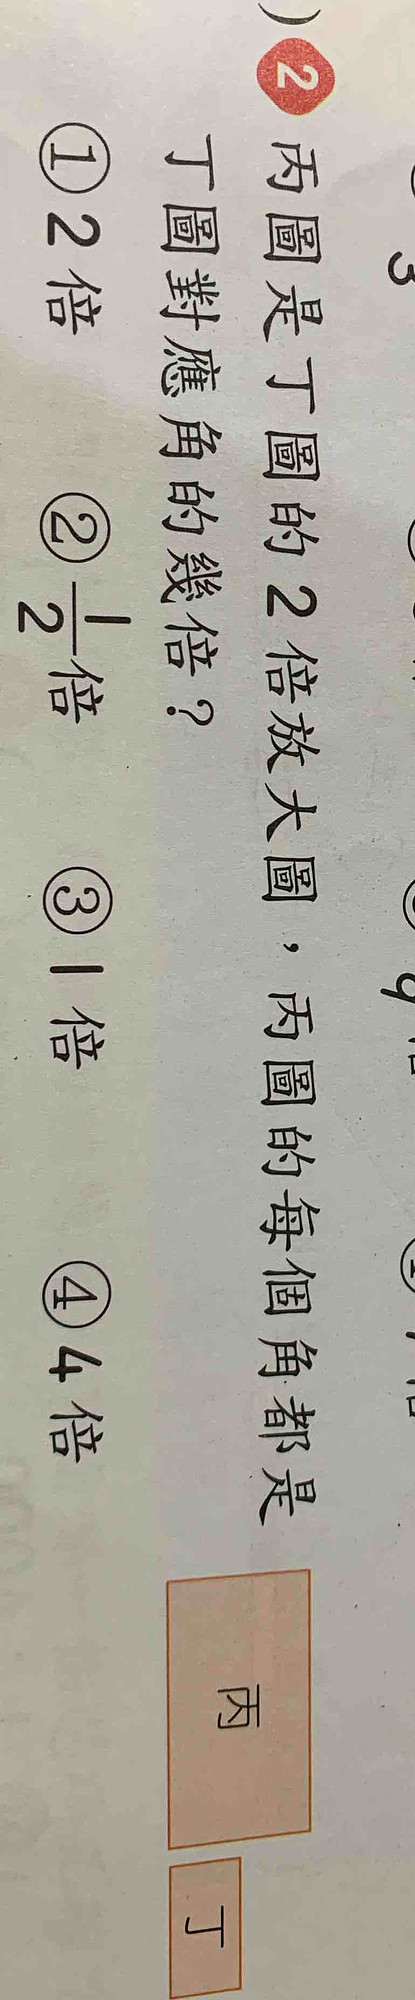 ) 2 丙圖是丁圖的2倍放大圖，丙圖的每個角都是
丁圖對應角的幾倍？
①2倍 ②1/2倍 ③1倍 ④4倍
丙
丁